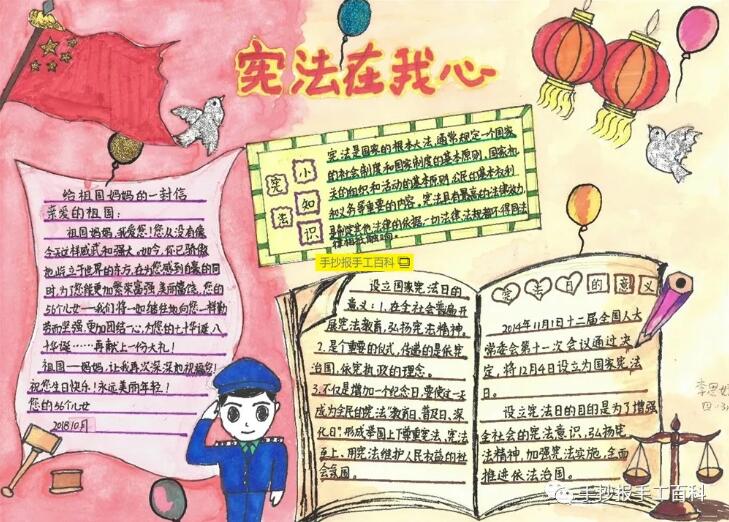 宪法在我心
给祖国妈妈的一封信
亲爱的祖国：
祖国妈妈，我爱您！您从没有像
今天这样威武和强大。如今，你已骄傲
地屹立于世界的东方，在为您感到自豪的同
时，为了您能更加繁荣富强，美丽富饶，您的
56个儿女一一我们将一如继往地向您一样勤
劳而坚强，更加团结一心，为您的七十华诞、八
十华诞……再献上一份大礼！
祖国一一妈妈，让我再次深深地祝福您！
祝您生日快乐！永远美丽年轻！
您的56个儿女
2018.10月
宪法小知识
宪法是国家的根本大法，通常规定一个国家
的社会制度和国家制度的基本原则，国家机
关的组织和活动的基本原则，公民的基本权利
和义务等重要的内容。宪法具有最高的法律效力，
是制定其他法律的依据，一切法律、法规都不得同宪
法律相抵触。
手抄报手工百科
设立国家宪法日的
意义：1.在全社会普遍开
展宪法教育，弘扬宪法精神
2.是个重要的仪式，传递的是依宪
治国、依宪执政的理念。
3.不仅是增加一个纪念日，要使这一天
成为全民的宪法“教育日、普及日、深
化日”，形成举国上下尊重宪法、宪法
至上、用宪法维护人民权益的社
会氛围。
宪法日的意义
2014年11月1日十二届全国人大
常委会第十一次会议通过决
定，将12月4日设立为国家宪法
日。
设立宪法日的目的是为了增强
全社会的宪法意识，弘扬宪
法精神，加强宪法实施，全面
推进依法治国。
李思
四.
手抄报手工百科